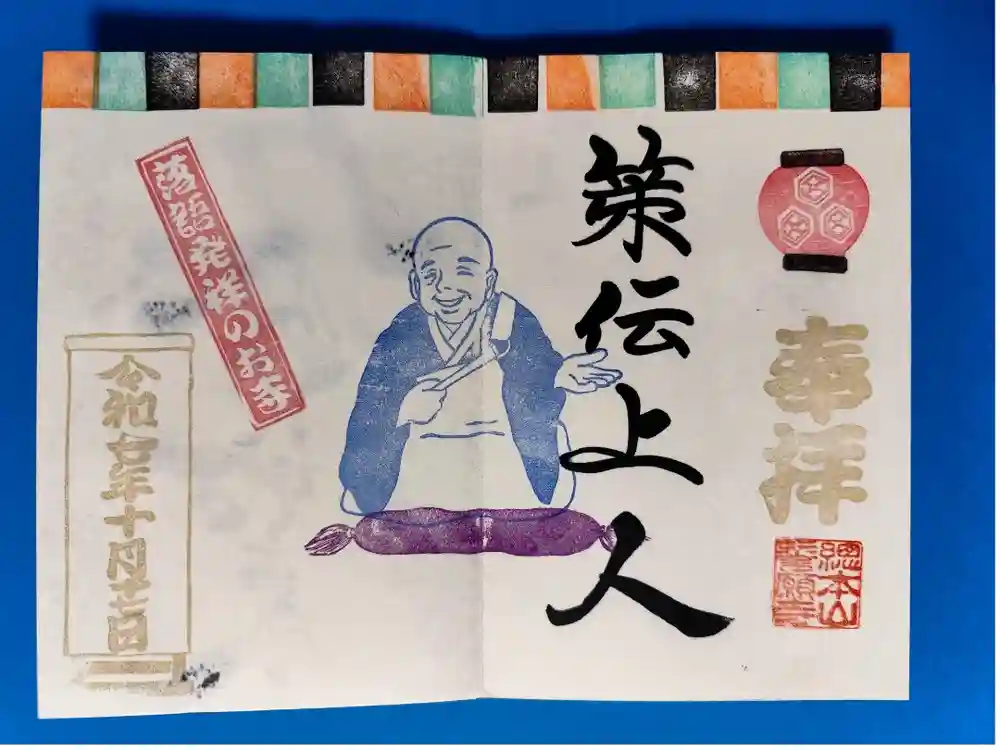 奉拝
總本山
誓願寺
策伝上人
落語発祥のお寺
令和年十月日